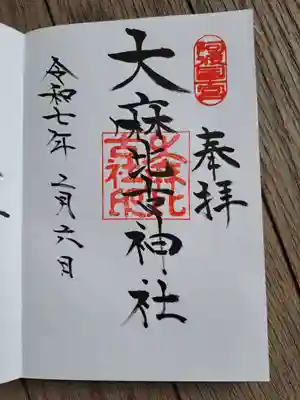 奉拝
大麻比古神社
大麻比
古社印
令和七年二月六日